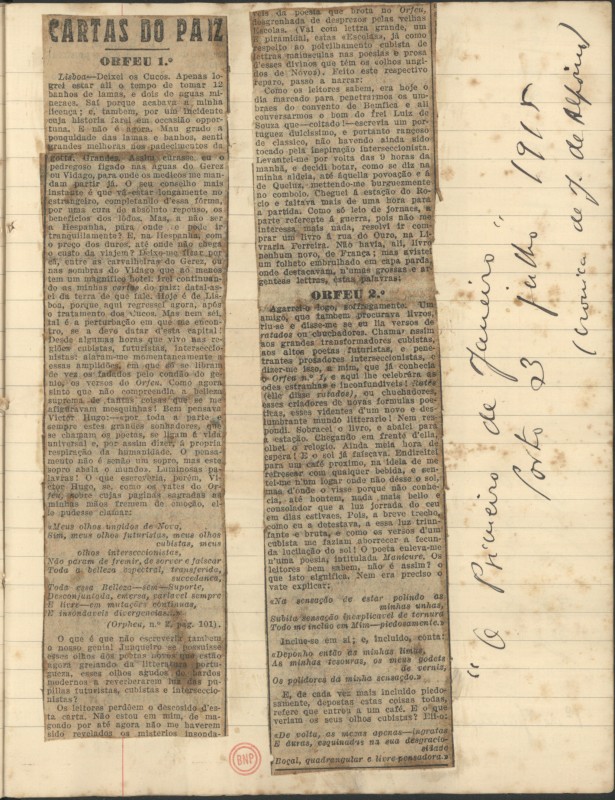 CARTAS DO PAIZ
ORFEU 1.º
Lisboa—Deixei os Cucos. Apenas lo-
grei estar ali o tempo de tomar 12
banhos de lamas, e dois de aguas mi-
neraes. Saí porque acabava a minha
licença; e, tambem, por um incidente
cuja historia farei em ocasião oppor-
tuna. E não é agora. Mau grado a
pouquidade das lamas e banhos, senti
grandes melhoras nos padecimentos da
gotta. Grandes. Assim curasse eu o
pedregoso figado nas aguas do Gerez
ou Vidago, para onde os medicos me man-
dam partir já. O seu conselho mais
instante é que vá estar longamente no
estrangeiro, completando d'essa fórma,
por uma cura de absoluto reponso, os
beneficios dos lôdos. Mas, a não ser
a Hespanha, para onde o pode ir
tranquilamente? E, na Hespanha, com
o preço dos duros, até onde não chega
o custo da viajem? Deixo-me ficar por
cá, entre as carvalheiras do Gerez, ou
nas sombras do Vidago que só menos
tem um magnifico hotel. Irei continuan-
do as minhas cartas do paiz: datal-as-
ei da terra de que fale. Hoje é de Lis-
boa, porque aqui regressei agora, após
o tratamento dos Cucos. Mas nem sei,
tal é a perturbação em que me encon-
tro, se a devo datar d'esta capital!
Desde algumas horas que vivo nas re-
giões cubistas, futuristas, interseccio-
nistas: alaram-me momentaneamente a
essas amplidões, em que só se libram
de vez os fadados pelo condão do ge-
nio, os versos do Orfeu. Como agora
sinto que não comprehendia a belleza
suprema de tantas coisas que se me
afiguravam mesquinhas! Bem pensava
Victor Hugo:—«por toda a parte e
sempre estes grandes sonhadores, que
se chamam os poetas, se ligam á vida
universal e, por assim dizer, á propria
respiração da humanidade. O pensa-
mento não é senão um sopro, mas este
sopro abala o mundo». Luminosas pa-
lavras! O que escreveria, porém, Vi-
ctor Hugo, se, como os vates do Or-
feu, sobre cujas paginas sagradas as
minhas mãos fremem de emoção, el-
le pudesse clamar:
«Meus olhos ungidos de Novo,
Sim, meus olhos futuristas, meus olhos
cubistas, meus
olhos interseccionistas,
Não param de fremir, de sorver e faiscar
Toda a belleza espectral, transferida,
succedanea,
Toda essa Belleza—sem—Suporte,
Desconjuntada, emersa, variavel sempre
E livre—em mutações continuas,
E insondaveis divergencias...»
(Orpheu, n.º 2, pag. 101).
O que é que não escreveria tambem
o nosso genial Junqueiro se possuisse
esses olhos dos poetas novos que estão
agora greiando da litteratura portu-
gueza, esses olhos agudos de bardos
modernos a reverberarem luz das pu-
pillas futuristas, cubistas e interseccio-
nistas?
Os leitores perdôem o descosido d'es-
ta carta. Não estou em mim, de ma-
goado por até agora não me haverem
sido revelados os misterios insonda-
veis da poesia que brota no Orfeu,
desgrenhada de despresos pelas velhas
Escolas. (Vai com lettra grande, um
E piramidal, estas «Escolas», já como
respeito ao polvilhamento cubista de
lettras maiusculas nas poesias e prosa
d'esses divinos que têm os «olhos ungi-
dos de Novo»). Feito este respectivo
reparo, passo a narrar:
Como os leitores sabem, era hoje o
dia marcado para penetrarmos os um-
braes do convento de Bemfica e ali
conversarmos o bom do frei Luiz de
Souza que—coitado!—escrevia um por-
tuguez dulcissimo, e portanto rançoso
de classico, não havendo ainda sido
tocado pela inspiração interseccionista.
Levantei-me por volta das 9 horas da
manhã, e decidi botar, como se diz na
minha aldeia, até áquella povoação e á
de Queluz, mettendo-me burguezmente
no comboio. Cheguei á estação do Ro-
cio e faltava mais de uma hora para
a partida. Como só leio de jornaes, a
parte referepte á guerra, pois não me
interessa mais nada, resolvi ir com-
prar um livro á rua do Ouro, na Li-
vraria Ferreira. Não havia, ali, livro
nenhum novo, de França; mas avistei
um folheto embrulhado em capa parda,
onde destacavam, n'umas grossas e ar-
genteas lettras, estas palavras:
ORFEU 2.º
Agarrei-o logo, soffregamente. Um
amigo, que tambem procurava livros,
riu-se e disse-me se eu lia versos de
ratados ou chuchadores. Chamar assim
aos grandes transformadores cubistas,
aos altos poetas futuristas, e pene-
trantes prosadores interseccionistas, e
dizer-me isso, a mim, que já conhecia
o Orfeu n.º 1, e aqui lhe celebrára as
odes estranhas e inconfundiveis! Ratés
(elle disse ratados), ou chuchadores,
esses criadores de novas formulas poe-
ticas, esses videntes d'um novo e des-
lumbrante mundo litterario! Nem res-
pondi. Sobracei o livro, e abalei para
a estação. Chegando em frente d'ella,
olhei o relogio. Ainda meia hora de
espera! E o sol já faiscava. Endireitei
para um café proximo, na ideia de me
refrescar com qualquer bebida, e sen-
tei-me n'um logar onde não désse o sol,
mas d'onde o visse porque não conhe-
cia, até hontem, nada mais bello e
consolador que a luz jorrada do ceu
em dias estivaes. Pois, a breve trecho,
como eu a detestava, a essa luz triun-
fante e bruta, e como os versos d'um
cubista me faziam aborrecer a fecun-
da lucilação do sol! O poeta enleva-me
n'uma poesia, intitulada Manicure. Os
leitores bem sabem, não é assim? o
que isto significa. Nem era preciso o
vate explicar:
«Na sensação de estar polindo as
minhas unhas,
Subita sensação inexplicavel de ternura
Todo me incluo em Mim—piedosamente.»
Inclue-se em si; e, incluido, conta:
«Deponho então as minhas limas,
As minhas tesouras, os meus godets
de verniz,
Os polidores da minha sensação.»
E, de cada vez mais incluido piedo-
samente, depostas estas coisas todas,
refere que entrou a um café. E o que
veriam os seus olhos cubistas? Eil-o:
«De volta, as mesas apenas—ingratas
E duras, esquinadas na sua desgracio-
sidade
Boçal, quadrangular e livre-pensadora.»
"O Primeiro de Janeiro"
Porto 23 julho 1915
(cronica de J. de Alpoim)
BNP